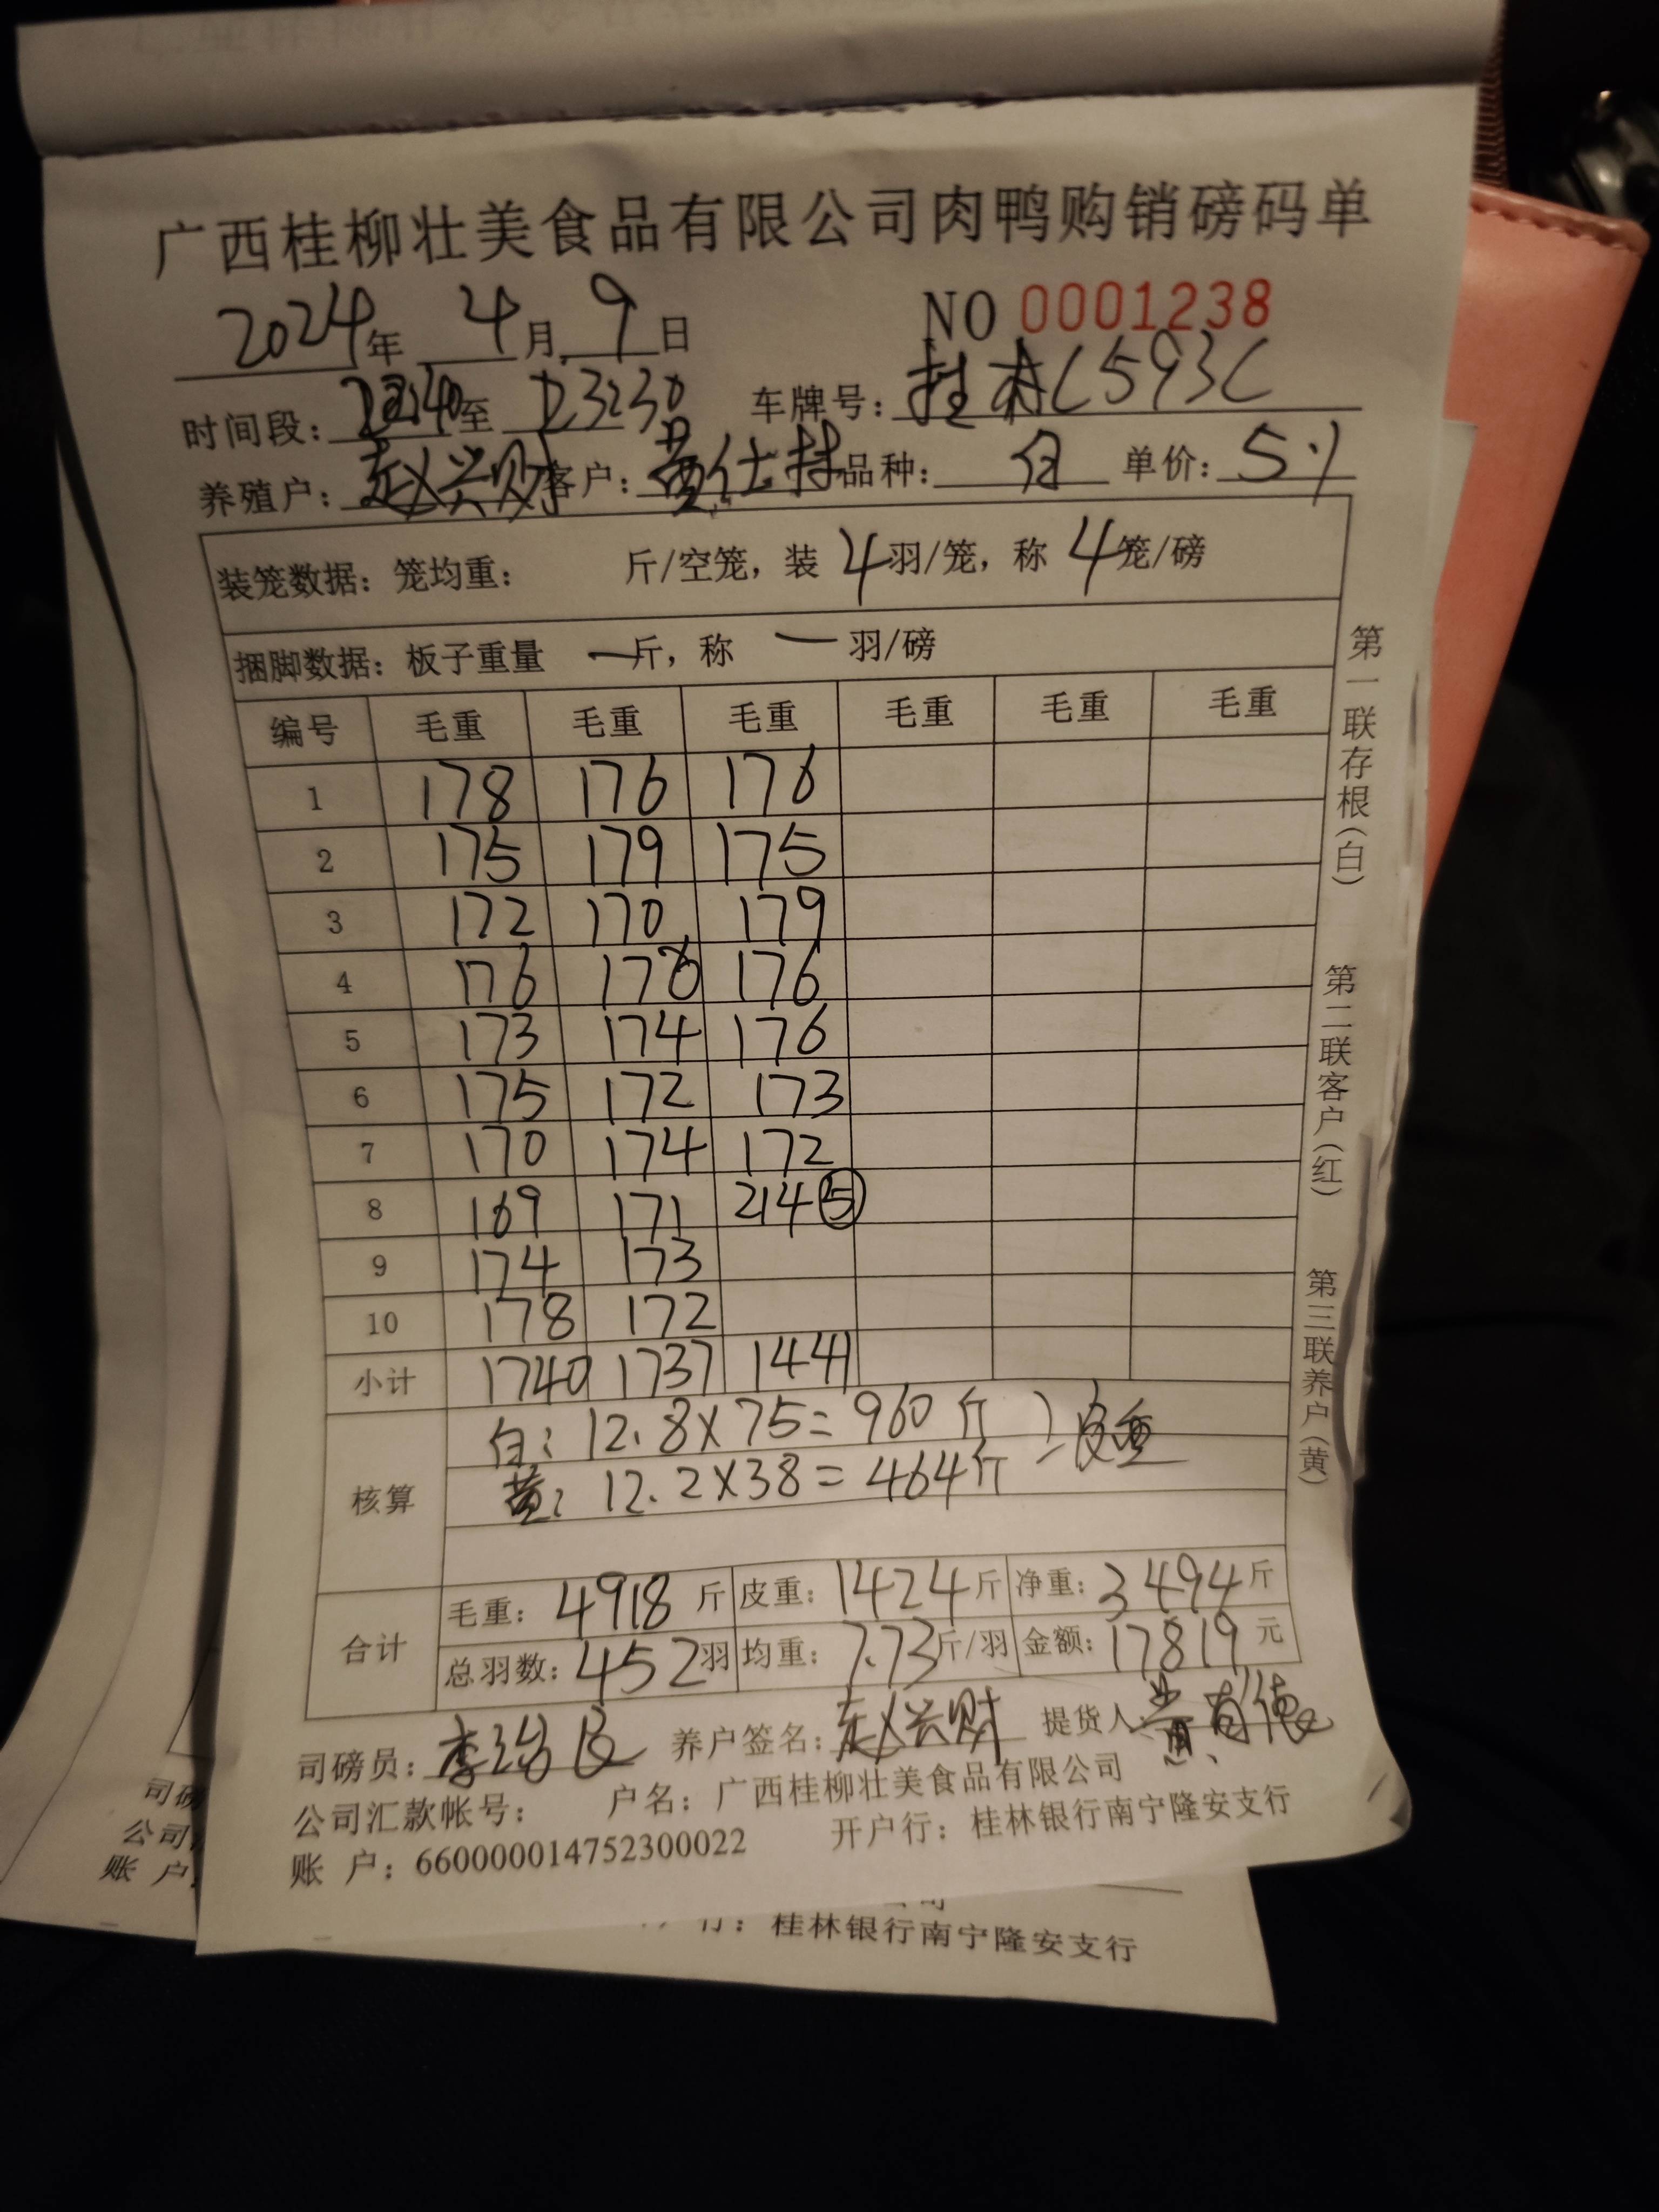 广西桂柳壮美食品有限公司肉鸭购销磅码单
2024年 4月 9日 NO 0001238
时间段: 至 23:30 车牌号: 桂 C593C
养殖户: 赵兴财 客户: 黄仕 品种: 白 单价: 5.1
装笼数据: 笼均重: 斤/空笼, 装 4 羽/笼, 称 4 笼/磅
捆脚数据: 板子重量 一 斤, 称 一 羽/磅
编号 毛重 毛重 毛重 毛重 毛重 毛重
1 178 176 176
2 175 179 175
3 172 170 179
4 176 176 176
5 173 174 176
6 175 172 173
7 170 174 172
8 169 171 214 ⑤
9 174 173
10 178 172
小计 1740 1737 1441
核算
白: 12.8×75=960斤 } 皮重
黄: 12.2×38=464斤
合计
毛重: 4918 斤 皮重: 1424 斤 净重: 3494 斤
总羽数: 452 羽 均重: 7.73 斤/羽 金额: 17819 元
司磅员: 李 养户签名: 赵兴财 提货人: 黄 德
公司汇款帐号: 户名: 广西桂柳壮美食品有限公司
账 户: 660000014752300022 开户行: 桂林银行南宁隆安支行
第一联存根(白)
第二联客户(红)
第三联养户(黄)
司磅
公司
账 户:
行: 桂林银行南宁隆安支行